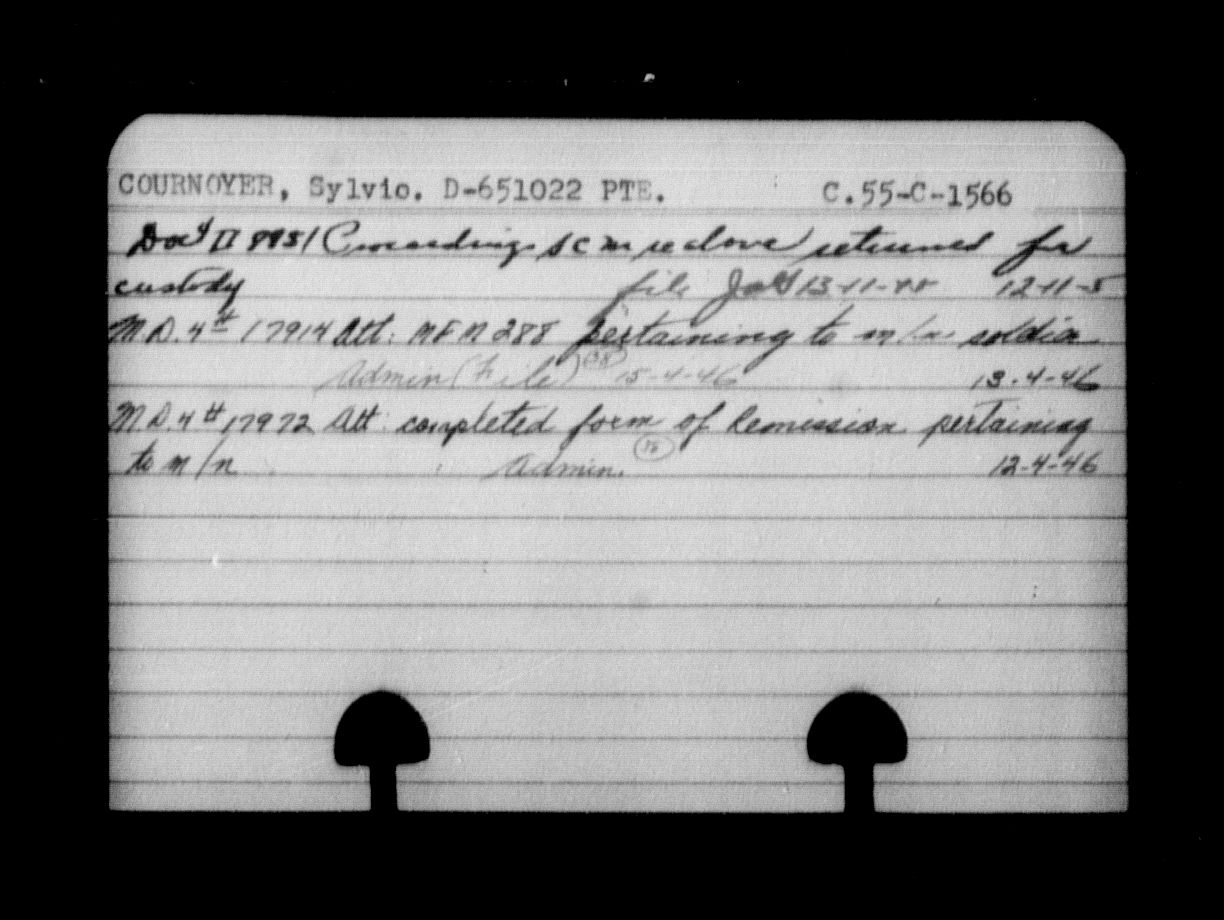 COURNOYER, Sylvio. D-651022 PTE. C.55-C-1566
Proceedings SCM re above returned for
custody file 12-11-5
M.D.4 # 17914 Att: MFM 288 pertaining to m/n soldier
Admin (File) 15-4-46 13-4-46
M.D.4 # 17972 Att: completed form of Remission pertaining
to m/n Admin. 12-4-46